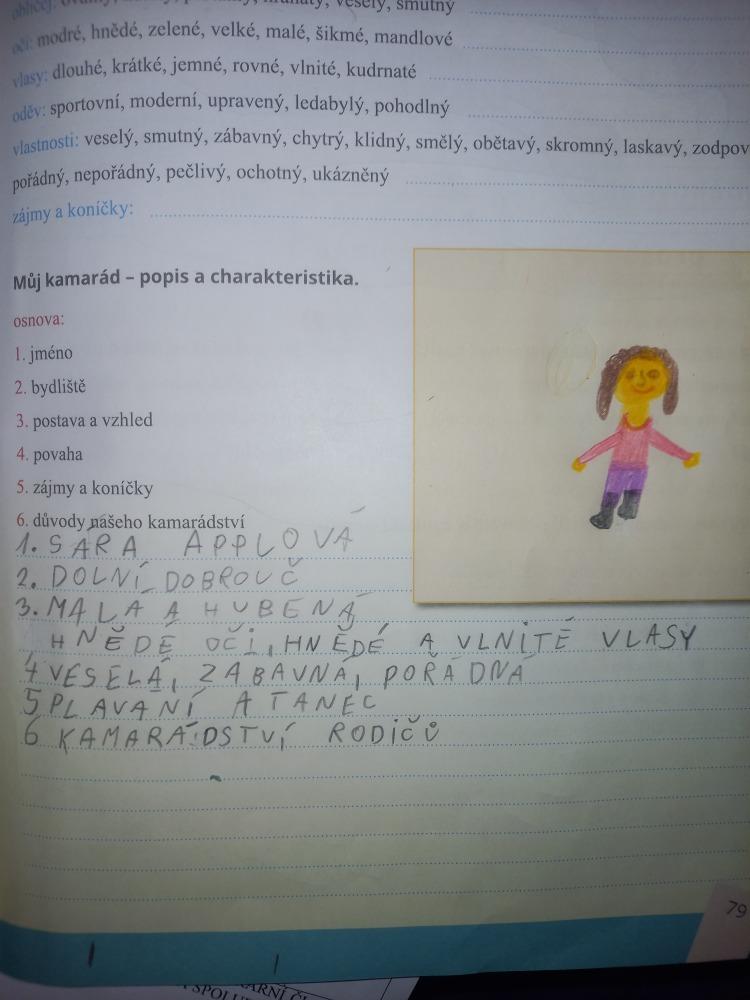 veselý, smutný
oči: modré, hnědé, zelené, velké, malé, šikmé, mandlové
vlasy: dlouhé, krátké, jemné, rovné, vlnité, kudrnaté
oděv: sportovní, moderní, upravený, ledabylý, pohodlný
vlastnosti: veselý, smutný, zábavný, chytrý, klidný, smělý, obětavý, skromný, laskavý, zodpov
pořádný, nepořádný, pečlivý, ochotný, ukázněný
zájmy a koníčky:
Můj kamarád – popis a charakteristika.
osnova:
1. jméno
2. bydliště
3. postava a vzhled
4. povaha
5. zájmy a koníčky
6. důvody našeho kamarádství
1. SÁRA APPLOVÁ
2. DOLNÍ DOBROUČ
3. MALÁ A HUBENÁ
HNĚDÉ OČI, HNĚDÉ A VLNITÉ VLASY
4 VESELÁ, ZÁBAVNÁ, POŘÁDNÁ
5 PLAVANÍ A TANEC
6 KAMARÁDSTVÍ RODIČŮ
79